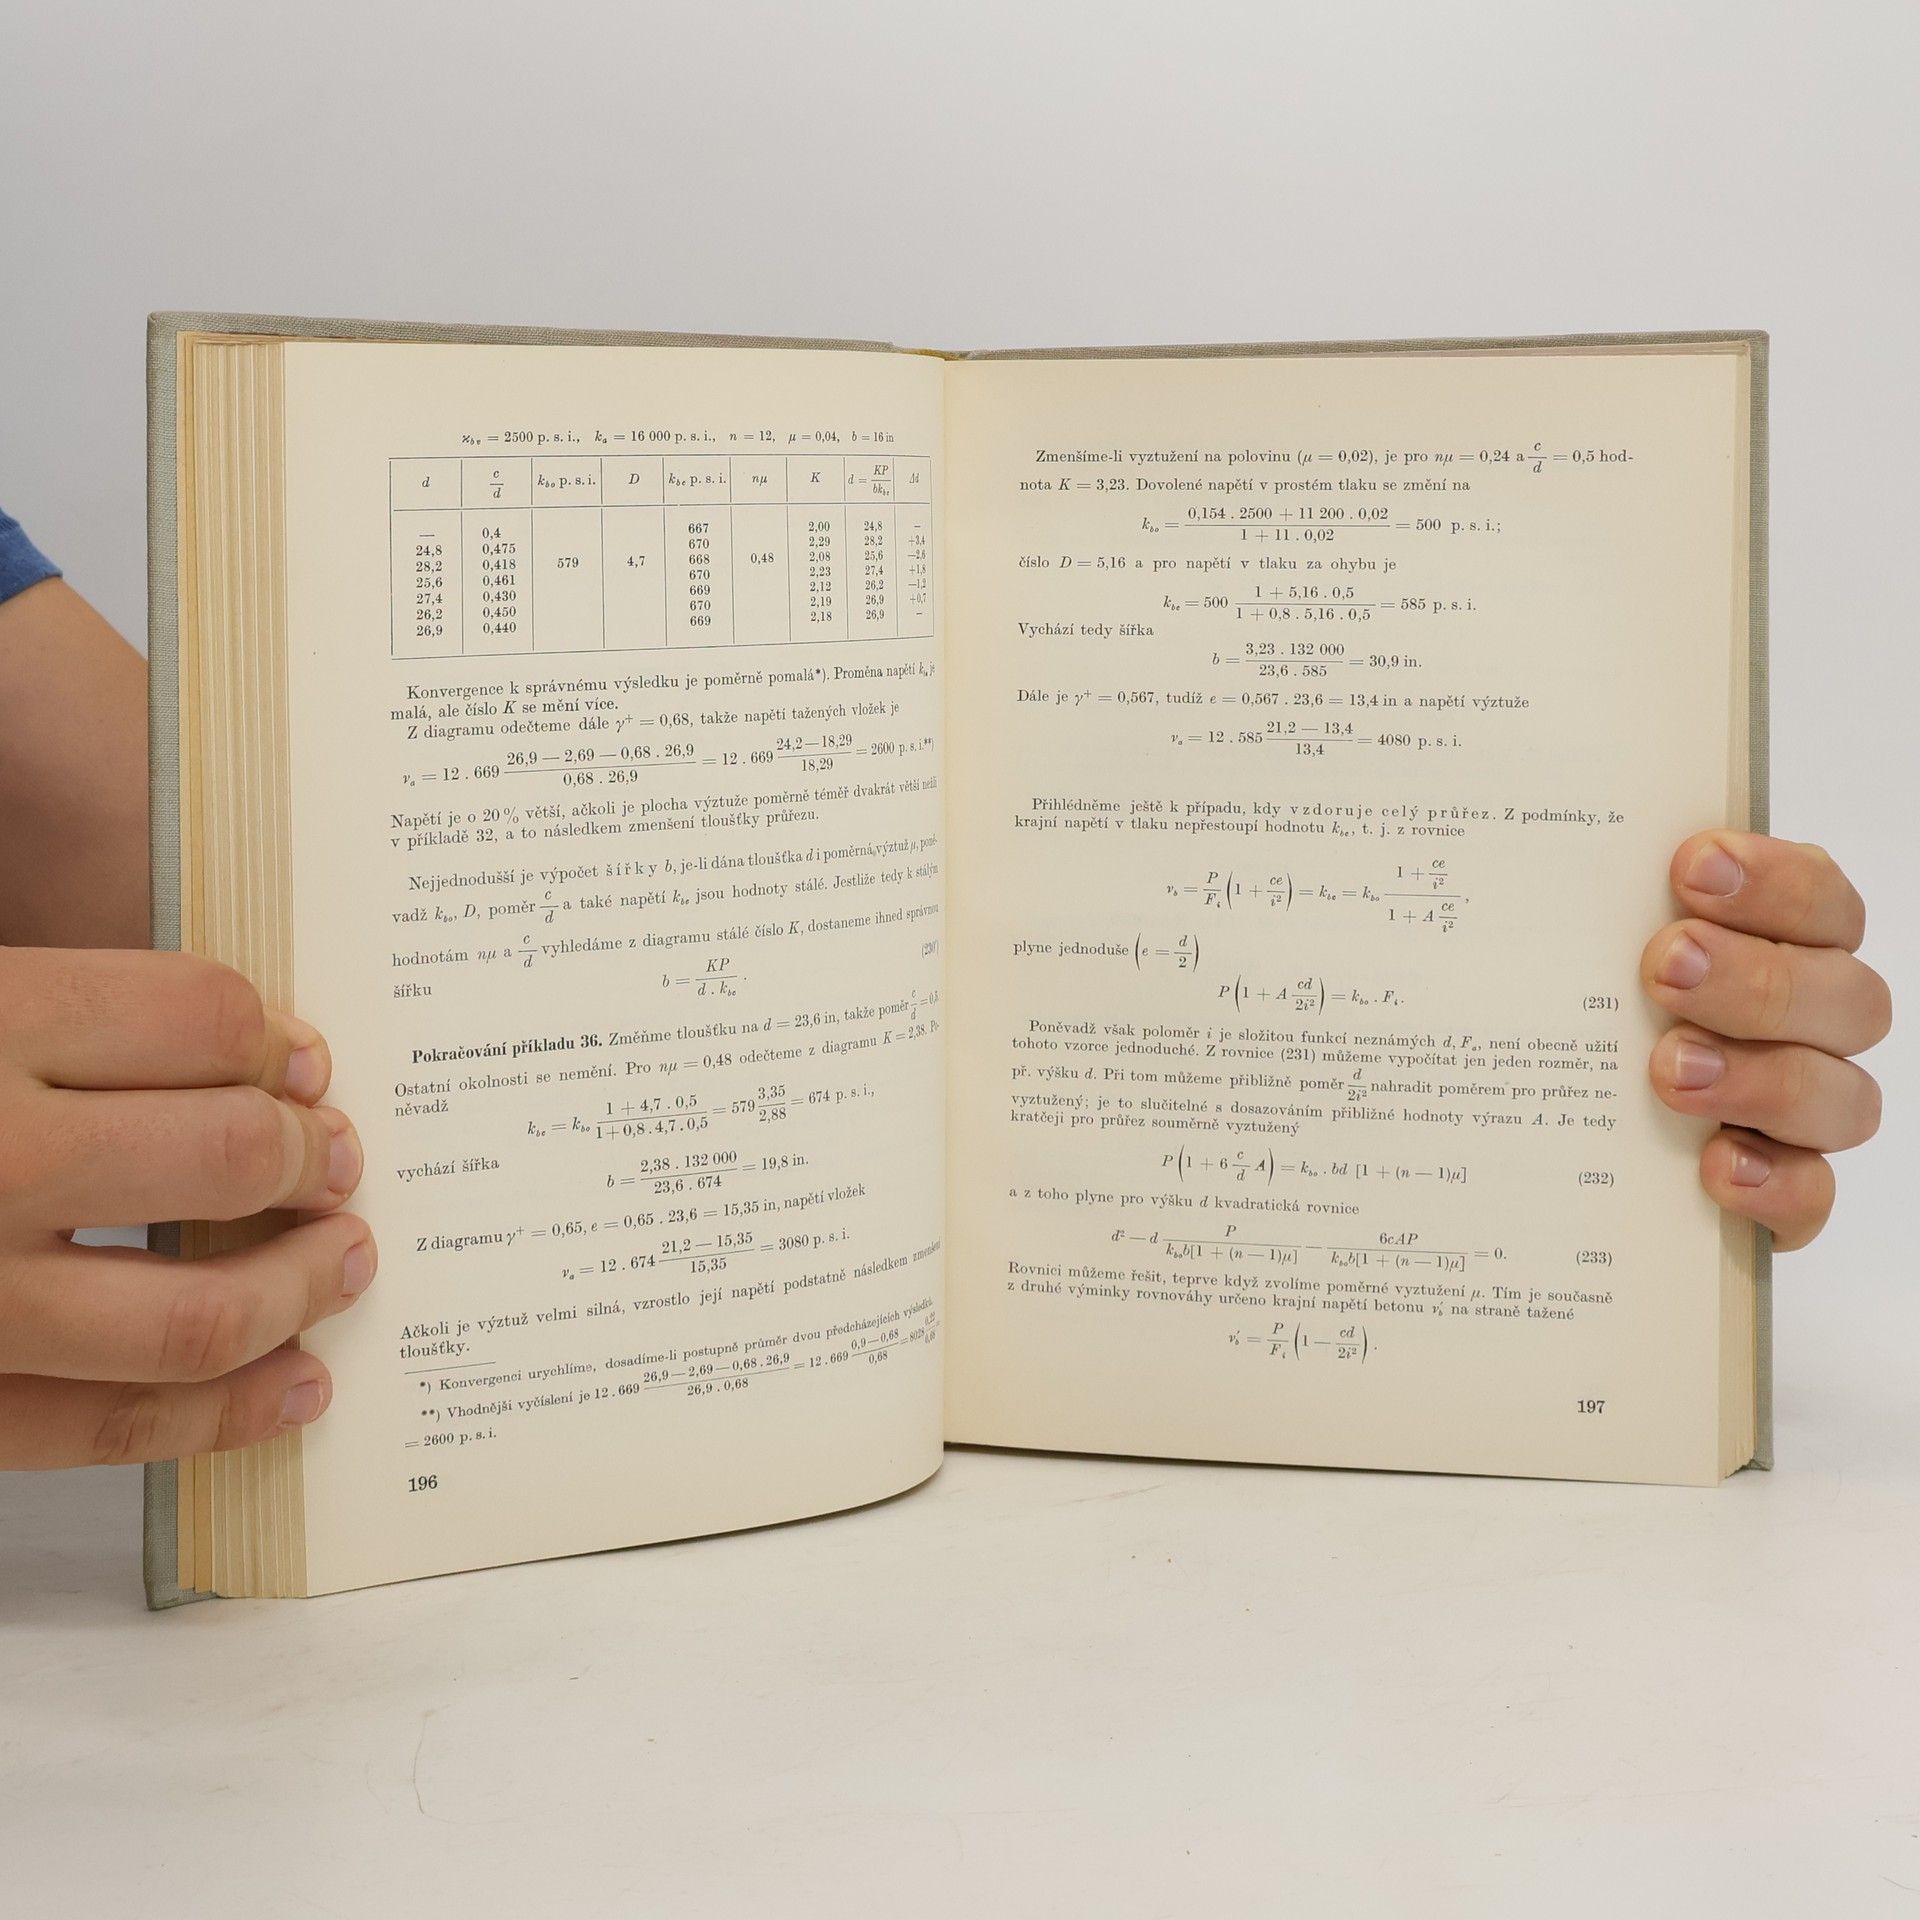 ϰbe = 2500 p. s. i., ka = 16 000 p. s. i., n = 12, μ = 0,04, b = 16 in
d | c/d | kbo p. s. i. | D | kbe p. s. i. | nμ | K | d = KP/bkbe | Δd
— | 0,4 | | | 667 | | 2,00 | 24,8 | –
24,8 | 0,475 | | | 670 | | 2,29 | 28,2 | +3,4
28,2 | 0,418 | 579 | 4,7 | 668 | 0,48 | 2,08 | 25,6 | —2,6
25,6 | 0,461 | | | 670 | | 2,23 | 27,4 | +1,8
27,4 | 0,430 | | | 669 | | 2,12 | 26,2 | —1,2
26,2 | 0,450 | | | 670 | | 2,19 | 26,9 | +0,7
26,9 | 0,440 | | | 669 | | 2,18 | 26,9 | –
Konvergence k správnému výsledku je poměrně pomalá*). Proměna napětí kbe je
malá, ale číslo K se mění více.
Z diagramu odečteme dále γ+ = 0,68, takže napětí tažených vložek je
νa = 12 . 669 (26,9 — 2,69 — 0,68 . 26,9)/(0,68 . 26,9) = 12 . 669 (24,2—18,29)/18,29 = 2600 p. s. i.**)
Napětí je o 20 % větší, ačkoli je plocha výztuže poměrně téměř dvakrát větší nežli
v příkladě 32, a to následkem zmenšení tloušťky průřezu.
Nejjednodušší je výpočet šířky b, je-li dána tloušťka d i poměrná výztuž μ, poně-
vadž kbo, D, poměr c/d a také napětí kbe jsou hodnoty stálé. Jestliže tedy k stálým
hodnotám nμ a c/d vyhledáme z diagramu stálé číslo K, dostaneme ihned správnou
šířku
b = KP/(d . kbe) . (230')
Pokračování příkladu 36. Změňme tloušťku na d = 23,6 in, takže poměr c/d = 0,5.
Ostatní okolnosti se nemění. Pro nμ = 0,48 odečteme z diagramu K = 2,38. Po-
něvadž
kbe = kbo (1 + 4,7 . 0,5)/(1 + 0,8 . 4,7 . 0,5) = 579 3,35/2,88 = 674 p. s. i.,
vychází šířka
b = (2,38 . 132 000)/(23,6 . 674) = 19,8 in.
Z diagramu γ+ = 0,65, e = 0,65 . 23,6 = 15,35 in, napětí vložek
νa = 12 . 674 (21,2 — 15,35)/15,35 = 3080 p. s. i.
Ačkoli je výztuž velmi silná, vzrostlo její napětí podstatně následkem zmenšení
tloušťky.
*) Konvergenci urychlíme, dosadíme-li postupně průměr dvou předcházejících výsledků.
**) Vhodnější vyčíslení je 12 . 669 (26,9 — 2,69 — 0,68 . 26,9)/(26,9 . 0,68) = 12 . 669 (0,9 — 0,68)/0,68 = 8028 0,22/0,68 =
= 2600 p. s. i.
196
Zmenšíme-li vyztužení na polovinu (μ = 0,02), je pro nμ = 0,24 a c/d = 0,5 hod-
nota K = 3,23. Dovolené napětí v prostém tlaku se změní na
kbo = (0,154 . 2500 + 11 200 . 0,02)/(1 + 11 . 0,02) = 500 p. s. i.;
číslo D = 5,16 a pro napětí v tlaku za ohybu je
kbe = 500 (1 + 5,16 . 0,5)/(1 + 0,8 . 5,16 . 0,5) = 585 p. s. i.
Vychází tedy šířka
b = (3,23 . 132 000)/(23,6 . 585) = 30,9 in.
Dále je γ+ = 0,567, tudíž e = 0,567 . 23,6 = 13,4 in a napětí výztuže
νa = 12 . 585 (21,2 — 13,4)/13,4 = 4080 p. s. i.
Přihlédněme ještě k případu, kdy vzdoruje celý průřez. Z podmínky, že
krajní napětí v tlaku nepřestoupí hodnotu kbe, t. j. z rovnice
νb = P/Fi (1 + ce/i²) = kbe = kbo (1 + ce/i²)/(1 + A ce/i²) ,
plyne jednoduše (e = d/2)
P (1 + A cd/2i²) = kbo . Fi. (231)
Poněvadž však poloměr i je složitou funkcí neznámých d, Fa, není obecně užití
tohoto vzorce jednoduché. Z rovnice (231) můžeme vypočítat jen jeden rozměr, na
př. výšku d. Při tom můžeme přibližně poměr d/2i² nahradit poměrem pro průřez ne-
vyztužený; je to slučitelné s dosazováním přibližné hodnoty výrazu A. Je tedy
kratčeji pro průřez souměrně vyztužený
P (1 + 6 c/d A) = kbo . bd [1 + (n — 1)μ] (232)
a z toho plyne pro výšku d kvadratická rovnice
d² — d P/(kbob[1 + (n — 1)μ]) — 6cAP/(kbob[1 + (n — 1)μ]) = 0. (233)
Rovnici můžeme řešit, teprve když zvolíme poměrné vyztužení μ. Tím je současně
z druhé výminky rovnováhy určeno krajní napětí betonu νb′ na straně tažené
νb′ = P/Fi (1 — cd/2i²) .
197